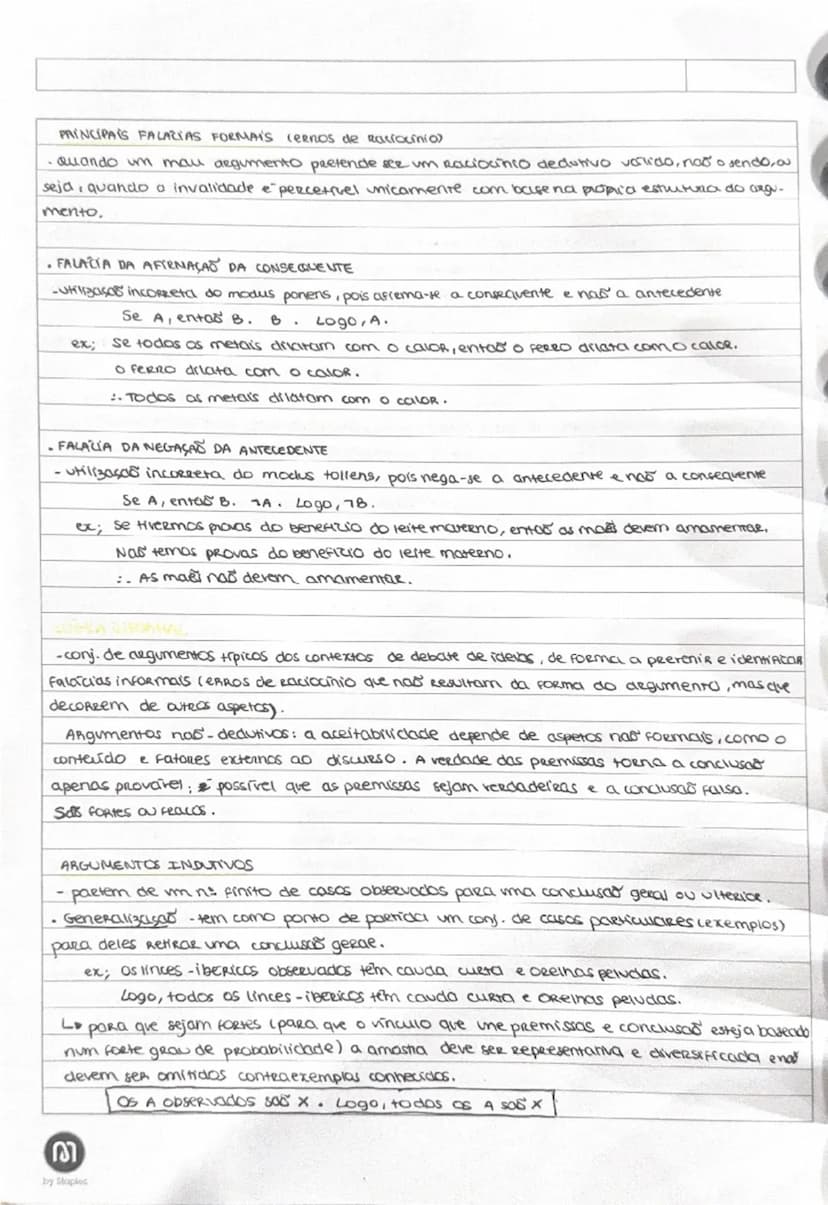 PRINCIPAIS FALÁCIAS FORMAIS (erros de raciocínio)
. Quando um mau argumento pretende ser um raciocínio dedutivo válido, não o sendo, ou
seja, quando a invalidade é percetível unicamente com base na própria estrutura do argu-
mento.
. FALÁCIA DA AFIRMAÇÃO DA CONSEQUENTE
- utilização incorreta do modus ponens, pois afirma-se a consequente e não a antecedente
Se A, então B. B. Logo, A.
ex; Se todos os metais dilatam com o calor, então o ferro dilata com o calor.
O ferro dilata com o calor.
∴ Todos os metais dilatam com o calor.
. FALÁCIA DA NEGAÇÃO DA ANTECEDENTE
- utilização incorreta do modus tollens, pois nega-se a antecedente e não a consequente
Se A, então B. ¬A. Logo, ¬B.
ex; Se tivermos provas do benefício do leite materno, então as mães devem amamentar.
Não temos provas do benefício do leite materno.
∴ As mães não devem amamentar.
LÓGICA INFORMAL
- conj. de argumentos típicos dos contextos de debate de ideias, de forma a prevenir e identificar
falácias informais (erros de raciocínio que não resultam da forma do argumento, mas que
decorrem de outros aspetos).
Argumentos não-dedutivos: a aceitabilidade depende de aspetos não formais, como o
conteúdo e fatores externos ao discurso. A verdade das premissas torna a conclusão
apenas provável; é possível que as premissas sejam verdadeiras e a conclusão falsa.
São fortes ou fracos.
ARGUMENTOS INDUTIVOS
- partem de um nº finito de casos observados para uma conclusão geral ou ulterior.
. Generalização - tem como ponto de partida um conj. de casos particulares (exemplos)
para deles retirar uma conclusão geral.
ex; Os linces-ibéricos observados têm cauda curta e orelhas peludas.
Logo, todos os linces-ibéricos têm cauda curta e orelhas peludas.
↳ para que sejam fortes (para que o vínculo que une premissas e conclusão esteja baseado
num forte grau de probabilidade) a amostra deve ser representativa e diversificada e não
devem ser omitidos contraexemplos conhecidos.
Os A observados são X. Logo, todos os A são X
by Staples